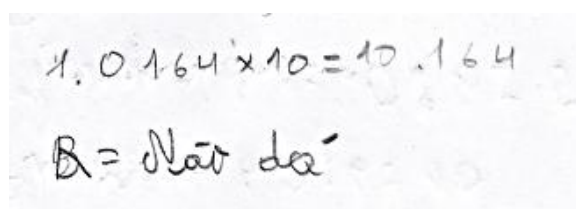 1.0164×10=10.164
R= Não dá